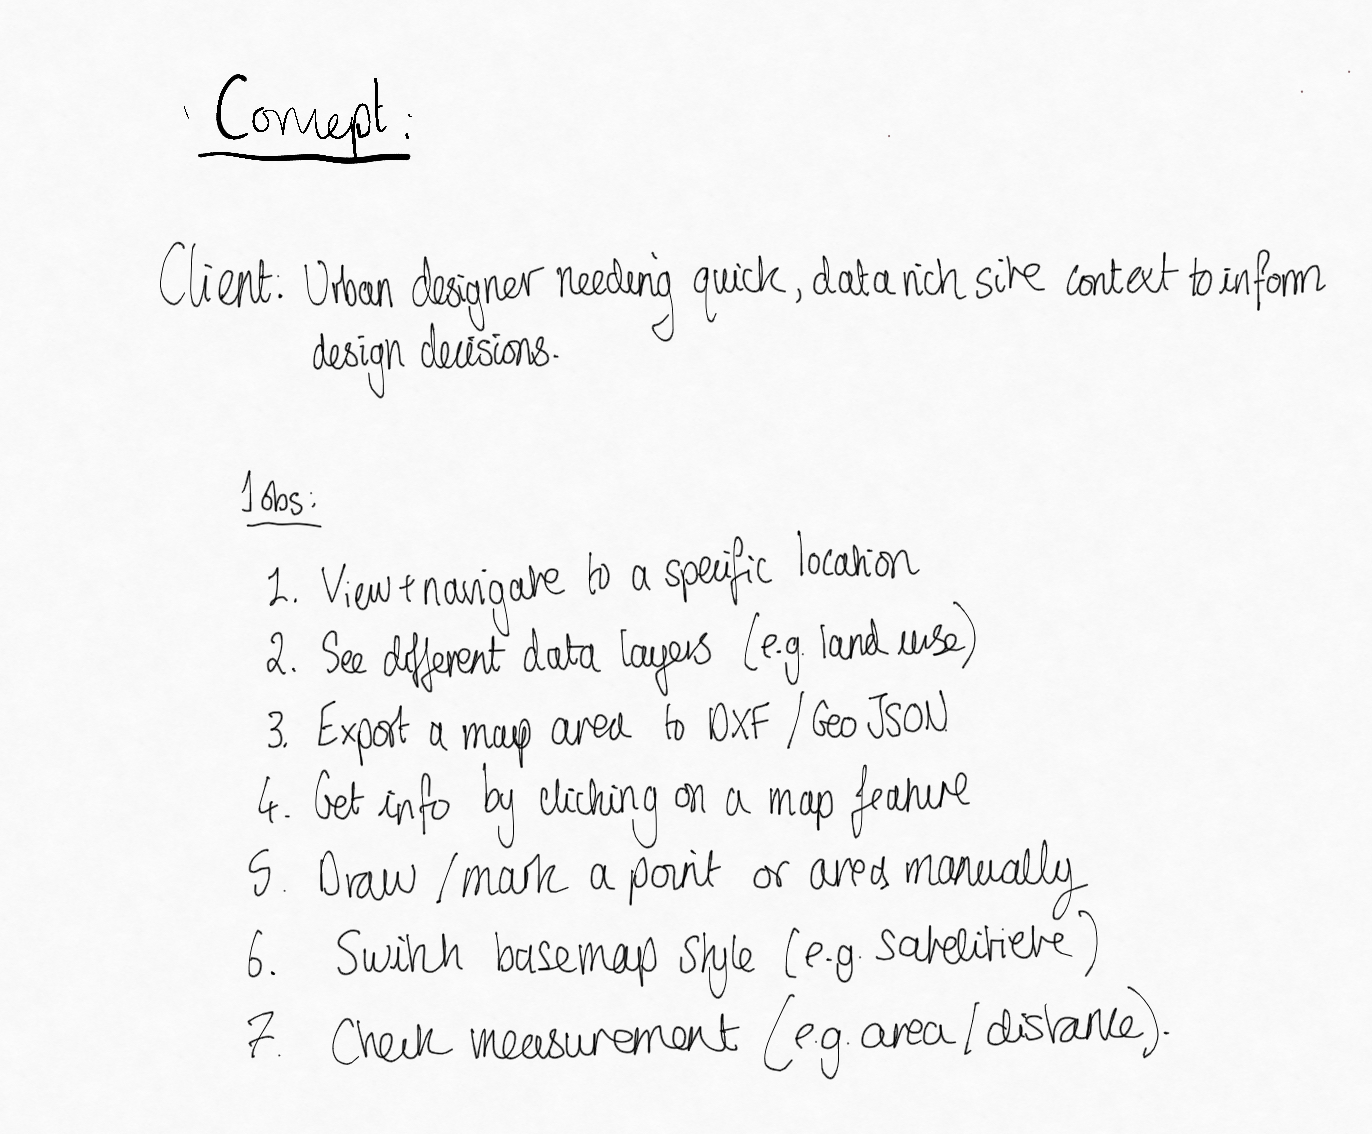 Concept:
Client: Urban designer needing quick, data rich site context to inform
design decisions.
Jobs:
1. View + navigate to a specific location
2. See different data layers (e.g. land use)
3. Export a map area to DXF / GeoJSON
4. Get info by clicking on a map feature
5. Draw / mark a point or area manually
6. Switch basemap style (e.g. satelitiete)
7. Check measurement (e.g. area / distance).